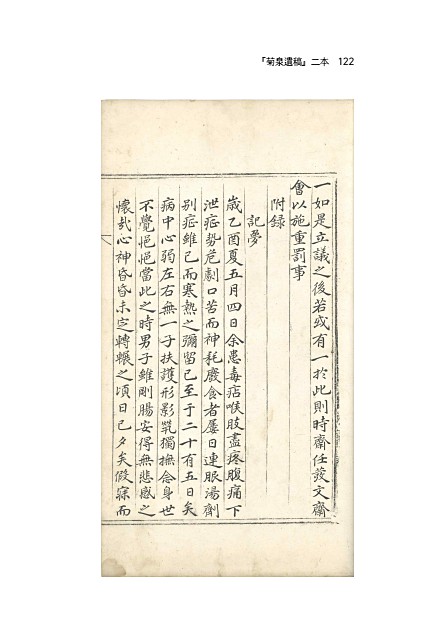 『菊泉遺稿』二本 122
一如是立議之後若或有一於此則時齋任發文齋
會以施重罰事
附録
記夢
歳乙酉夏五月四日余患毒痁喉肢盡疼腹痛下
泄症勢危劇口苦而神耗廢食者屢日連服湯劑
別症維已而寒熱之彌留已至于二十有五日矣
病中心弱左右無一子扶護形影煢獨撫念身世
不覺悒悒當此之時男子維剛腸安得無悲感之
懷㦲心神昏昏未定轉輾之頃日已夕矣假寐而